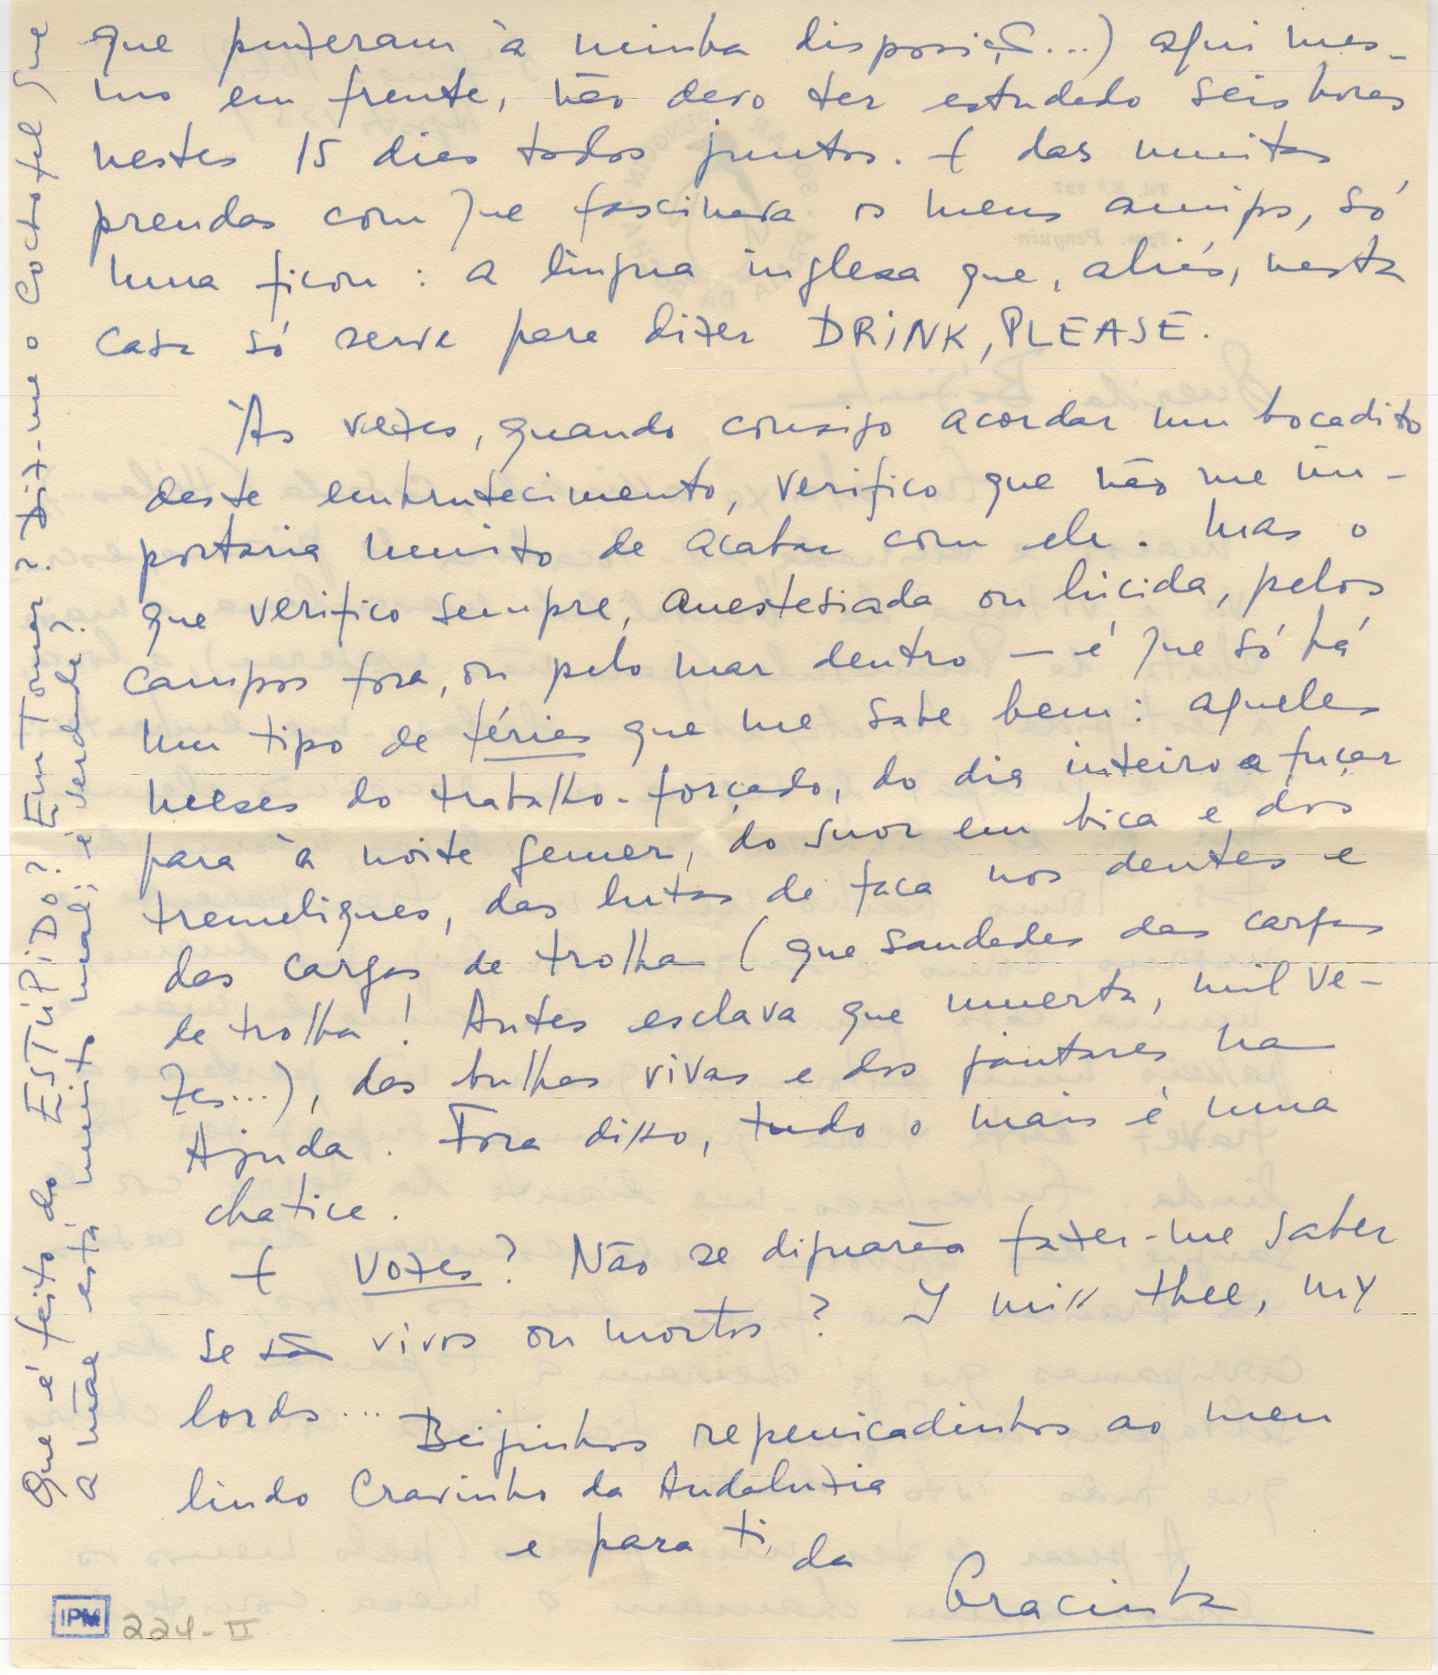 que puzeram à minha disposição...) aqui mes-
mo em frente, não devo ter estudado seis horas
nestes 15 dias todos juntos. E das muitas
prendas com que fascinava os meus amigos, só
uma ficou: a língua inglesa que, aliás, nesta
casa só serve para dizer DRINK, PLEASE.
Às vezes, quando consigo acordar um bocadito
deste embrutecimento, verifico que não me im-
portaria muito de acabar com ele. Mas o
que verifico sempre, anestesiada ou lúcida, pelos
campos fora, ou pelo mar dentro — é que só há
um tipo de férias que me sabe bem: aqueles
meses do trabalho-forçado, do dia inteiro a fuçar
para à noite gemer, do suor em bica e dos
tremeliques, das lutas de faca nos dentes e
das cargas de trolha (que saudades das cargas
de trolha! Antes esclava que muerta, mil ve-
zes...), das bulhas vivas e dos jantares na
Ajuda. Fora disso, tudo o mais é uma
chatice.
E Vozes? Não se dignarão fazer-me saber
se são vivos ou mortos? I miss thee, my
lords... Beijinhos repenicadinhos ao meu
lindo Cravinho da Andaluzia
e para ti, da
Gracinta
Que é feito do ESTÚPIDO? Em Tomar? Diz-me o Coctofel que
a mãe está muito mal; é verdade?
IPM 224-II